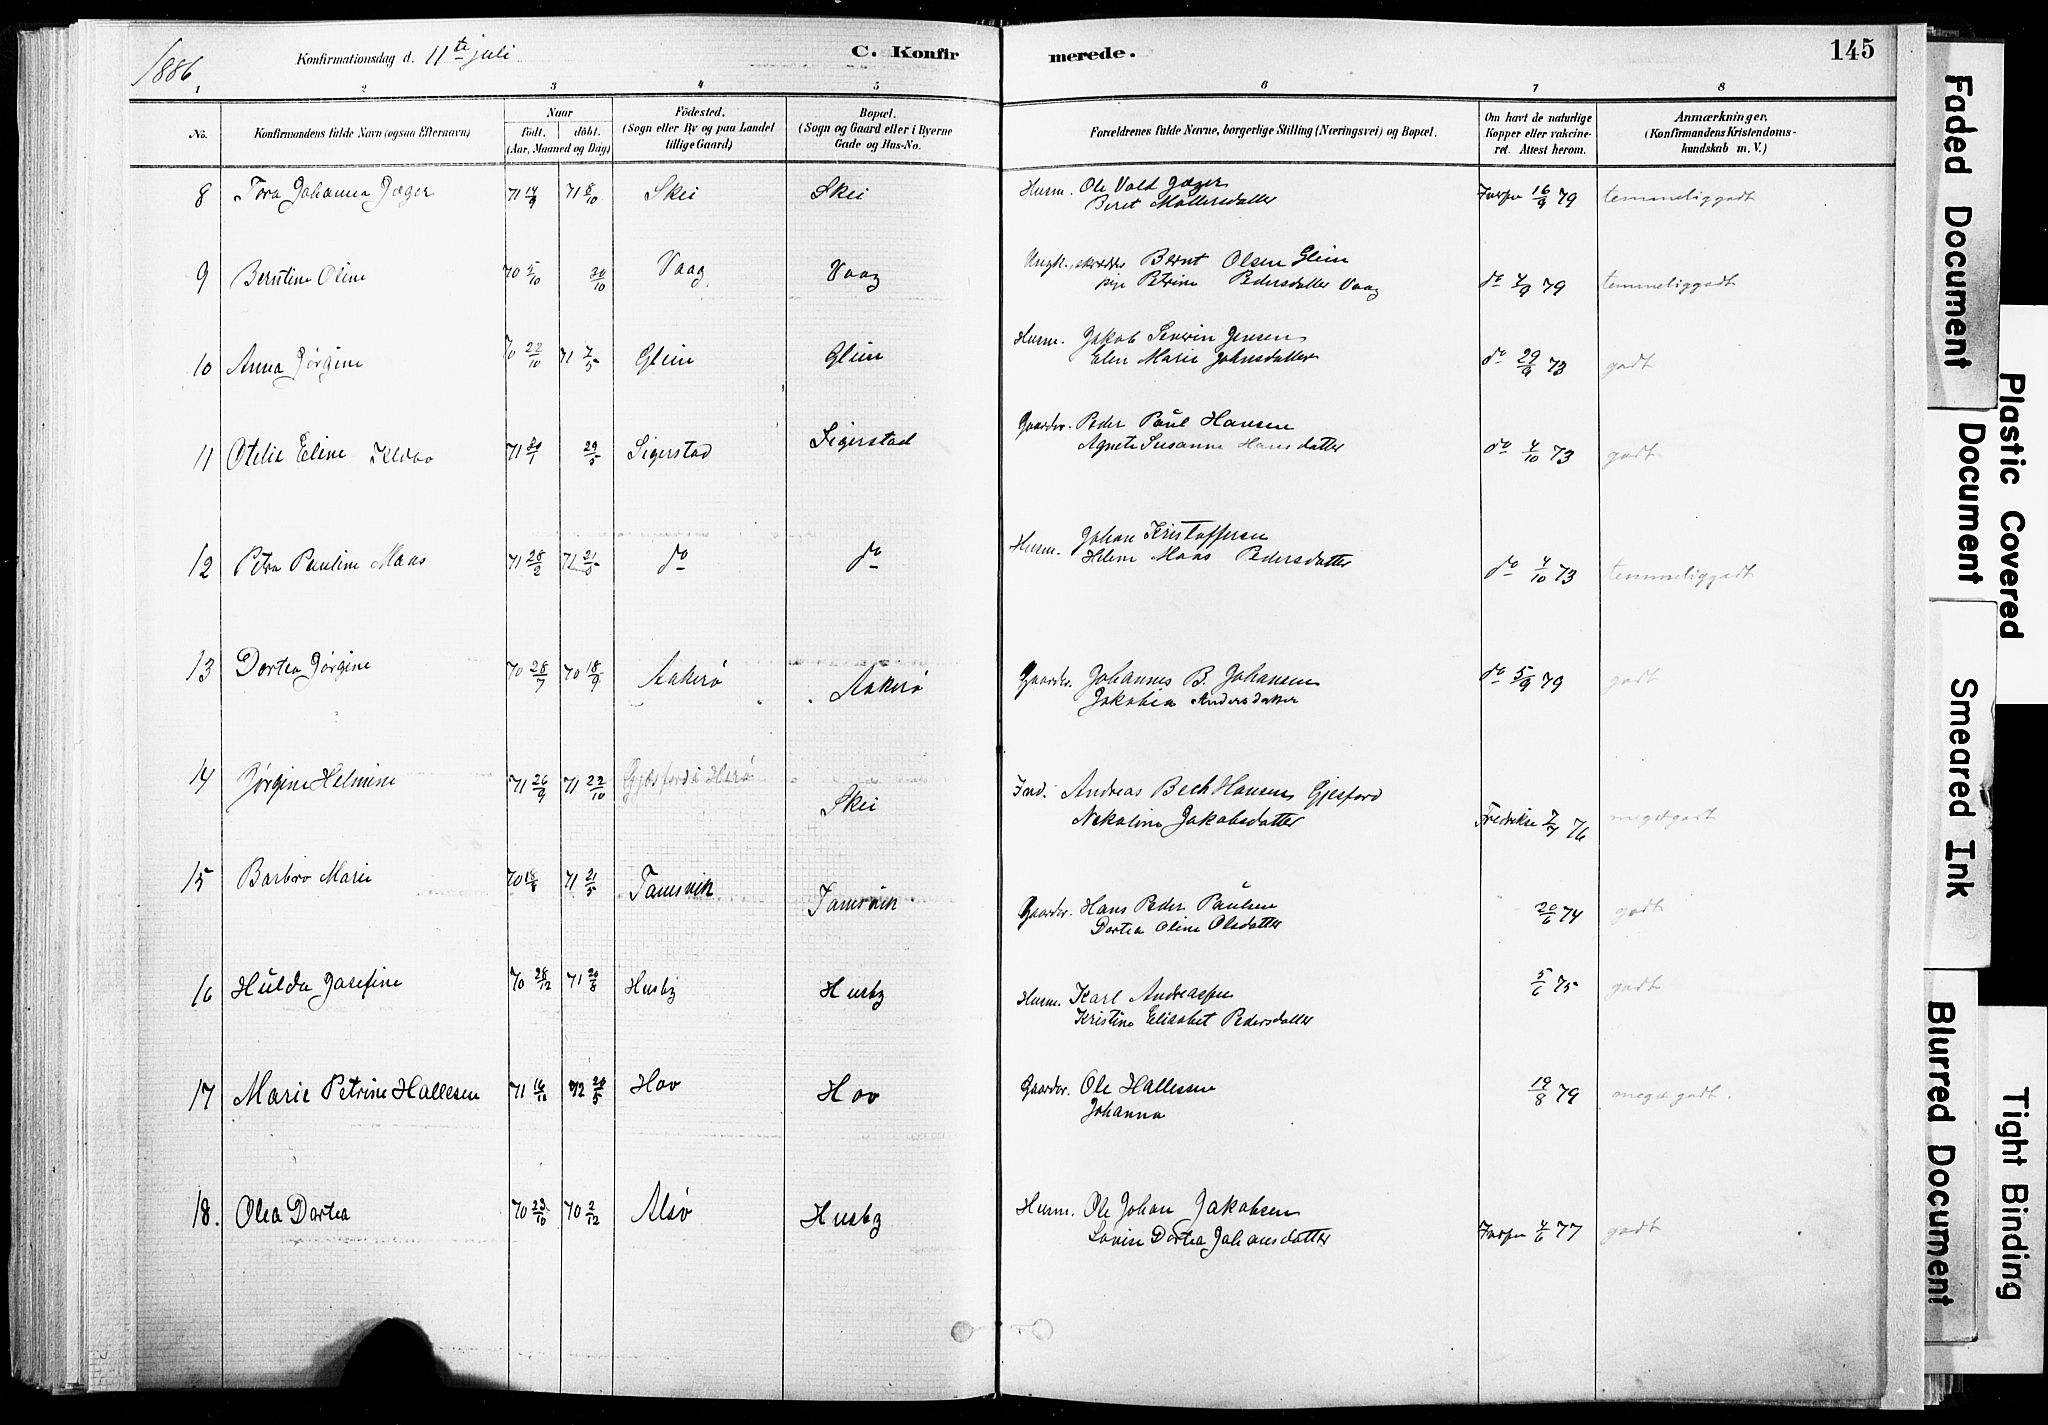 1886 Konfirmationsdag d. 11te juli C. Konfirmerede. 145
1 2 3 4 5 6 7 8
No. Konfirmandens fulde Navn (ogsaa Efternavn) Naar födt. döbt. (Aar, Maaned og Dag) Födested. (Sogn eller By og paa Landet tillige Gaard) Bopæl. (Sogn og Gaard eller i Byerne Gade og Hus-No. Forældrenes fulde Navne, borgerlige Stilling (Næringsvei) og Bopæl. Om havt de naturlige Kopper eller vakcineret. Attest herom. Anmærkninger, (Konfirmandens Kristendomskundskab m. V.)
8 Tora Johanna Jæger 71 14/9 71 8/10 Skei Skei Husm. Ole Vold Jæger
Beret Møllersdatter 16/9 79 temmeliggodt
9 Berntine Oline 70 5/10 30/10 Vaag Vaag Ungk. Bernt Olsen Glein
pige Petrine Pedersdatter Vaag do 4/9 79 temmeliggodt
10 Anna Jørgine 70 22/10 71 7/5 Glein Glein Husm. Jakob Severin Jensen
Elen Marie Johnsdatter do 29/9 73 godt
11 Otelie Eline 71 29/5 Sigerstad Sigerstad Gaardbr. Peder Paul Hansen
Agnete Susanne Hansdatter do 4/10 73 godt
12 Petra Pauline Maas 71 28/2 71 21/5 do do Husm. Johan Kristoffersen
Helene Maas Pedersdatter do 4/10 73 temmeliggodt
13 Dortea Jørgine 70 28/7 70 18/9 Aakerø Aakerø Gaardbr. Johannes B. Johansen
Jakobia Andersdatter do 5/9 79 godt
14 Jørgine Helmine 71 26/9 71 22/10 Gjæsfjord i Herø Skei Ind. Andreas Bech Hansen Gjesfjord
Nekoline Jakobsdatter 7/7 76 megetgodt
15 Barbro Marie 70 71 21/5 Tamsvik Tamsvik Gaardbr. Hans Peder Paulsen
Dortea Oline Olsdatter 20/6 74 godt
16 Hulda Josefine 70 28/12 71 20/8 Husby Husby Husm. Karl Andreassen
Kristine Elisabet Pedersdatter 5/6 75 godt
17 Marie Petrine Hallesen 71 16/10 72 20/5 Hov Hov Gaardbr. Ole Hallesen
Johanna 19/8 79 meget godt.
18. Olea Dortea 70 23/10 70 2/12 Alsø Husby Husm. Ole Johan Jakobsen
Lovise Dortea Johansdatter 4/6 77 godt
Faded Document
Plastic Covered Document
Smeared Ink
Blurred Document
Tight Binding